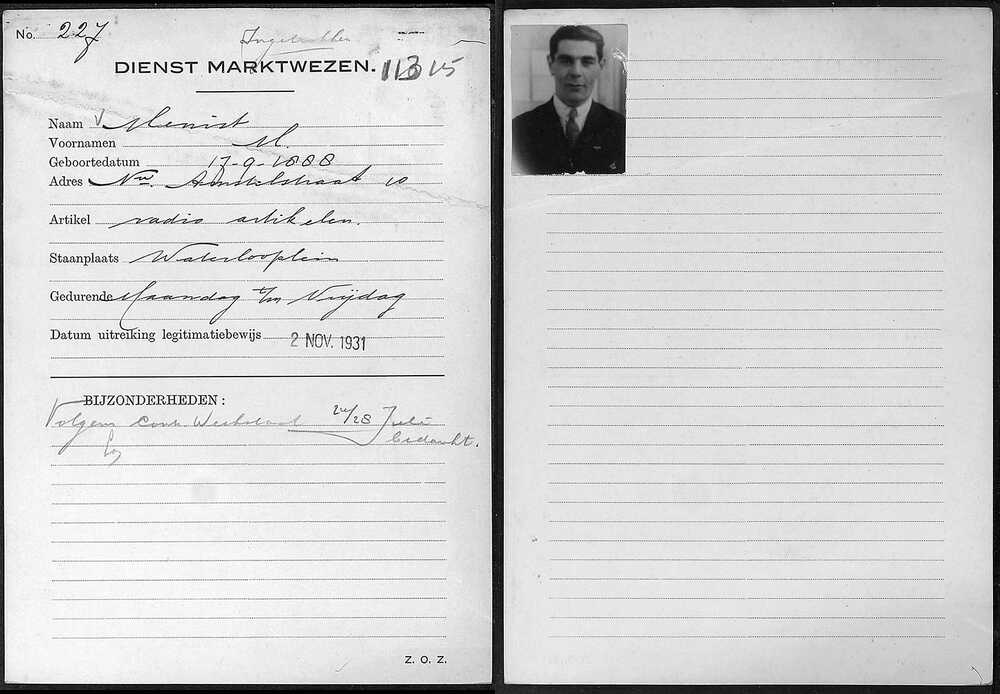 No. 227
DIENST MARKTWEZEN.
Naam Menist
Voornamen M.
Geboortedatum 17-9-1888
Adres Nwe. Amstelstraat 10
Artikel radio artikelen.
Staanplaats Waterlooplein
Gedurende Maandag t/m Vrijdag
Datum uitreiking legitimatiebewijs 2 NOV. 1931
BIJZONDERHEDEN :
Volgens Contr. Weekstaat 24/28 Juli
bedankt.
Z. O. Z.